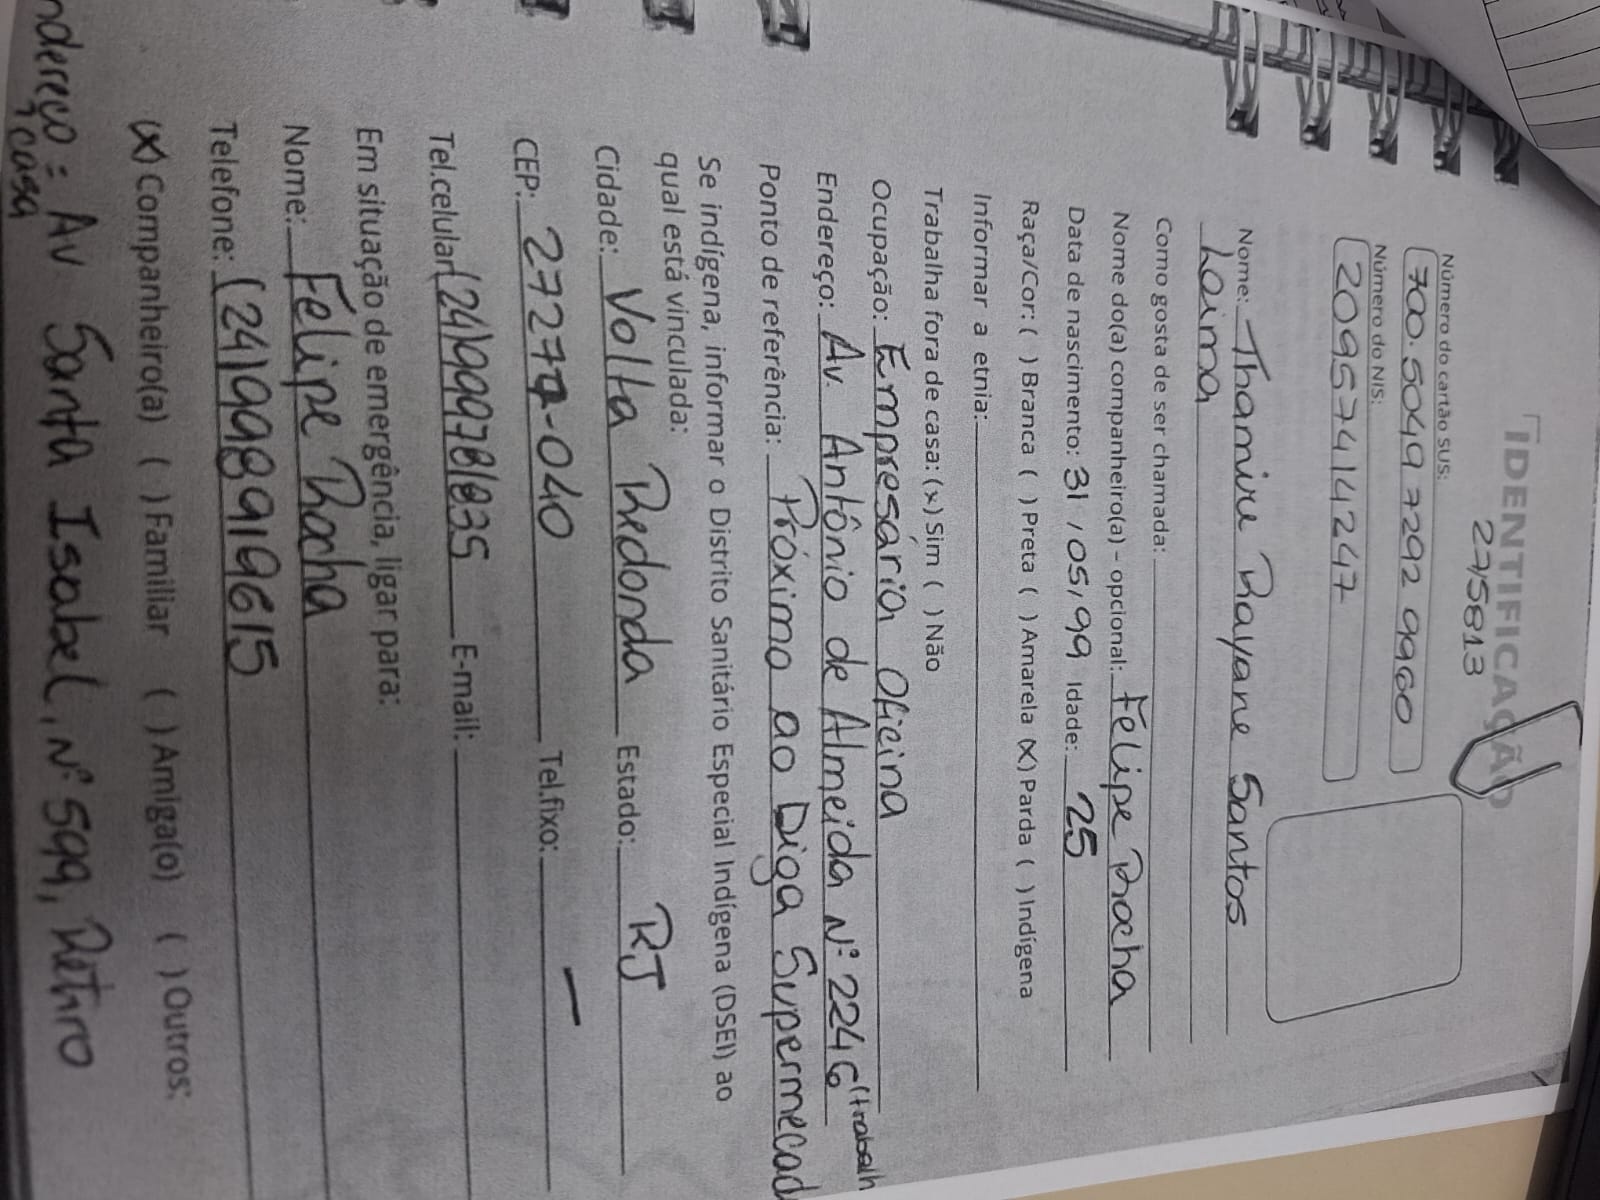 IDENTIFICAÇÃO
2275813
Número do cartão SUS:
700.5049 7292 9960
Número do NIS:
20957414247
Nome: Thamire Rayane Santos
Loima
Como gosta de ser chamada:
Nome do(a) companheiro(a) - opcional: Felipe Rocha
Data de nascimento: 31/05/99 Idade: 25
Raça/Cor: ( ) Branca ( ) Preta ( ) Amarela (X) Parda ( ) Indígena
Informar a etnia:
Trabalha fora de casa: (x) Sim ( ) Não
Ocupação: Empresária Oficina
Endereço: Av. Antônio de Almeida Nº 2246 (trabalh
Ponto de referência: Próximo ao Diga Supermecad
Se indígena, informar o Distrito Sanitário Especial Indígena (DSEI) ao
qual está vinculada:
Cidade: Volta Redonda Estado: RJ
CEP: 27277-040 Tel.fixo: —
Tel.celular: (24)999781835 E-mail:
Em situação de emergência, ligar para:
Nome: Felipe Rocha
Telefone: (24)998919615
(X) Companheiro(a) ( ) Familiar ( ) Amiga(o) ( ) Outros:
ndereço: Av Santa Isabel, Nº 599, Retiro
casa